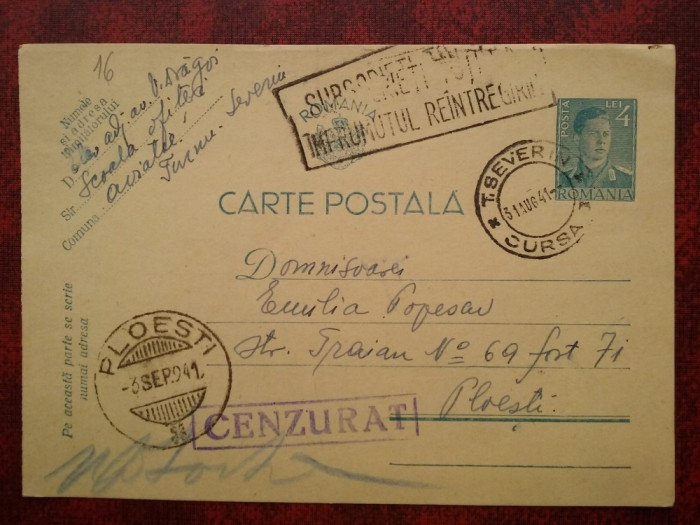 16
Numele
și adresa
trimițătorului
Elev adj. av. D. Drăgoi
Școala ofițeri
aviație
Turnu-Severin
D
Str.
Comuna
SUBSCRIEȚI TOȚI
ÎMPRUMUTUL REÎNTREGIRII
ROMANIA
POSTA
LEI 4
ROMANIA
T.SEVERIN
31 AUG 941
CURSA
CARTE POSTALĂ
Domnișoarei
Emilia Popescu
Str. Traian No 69 fost 71
Ploești.
Pe această parte se scrie
numai adresa
PLOESTI
-3 SEP. 941.
CENZURAT